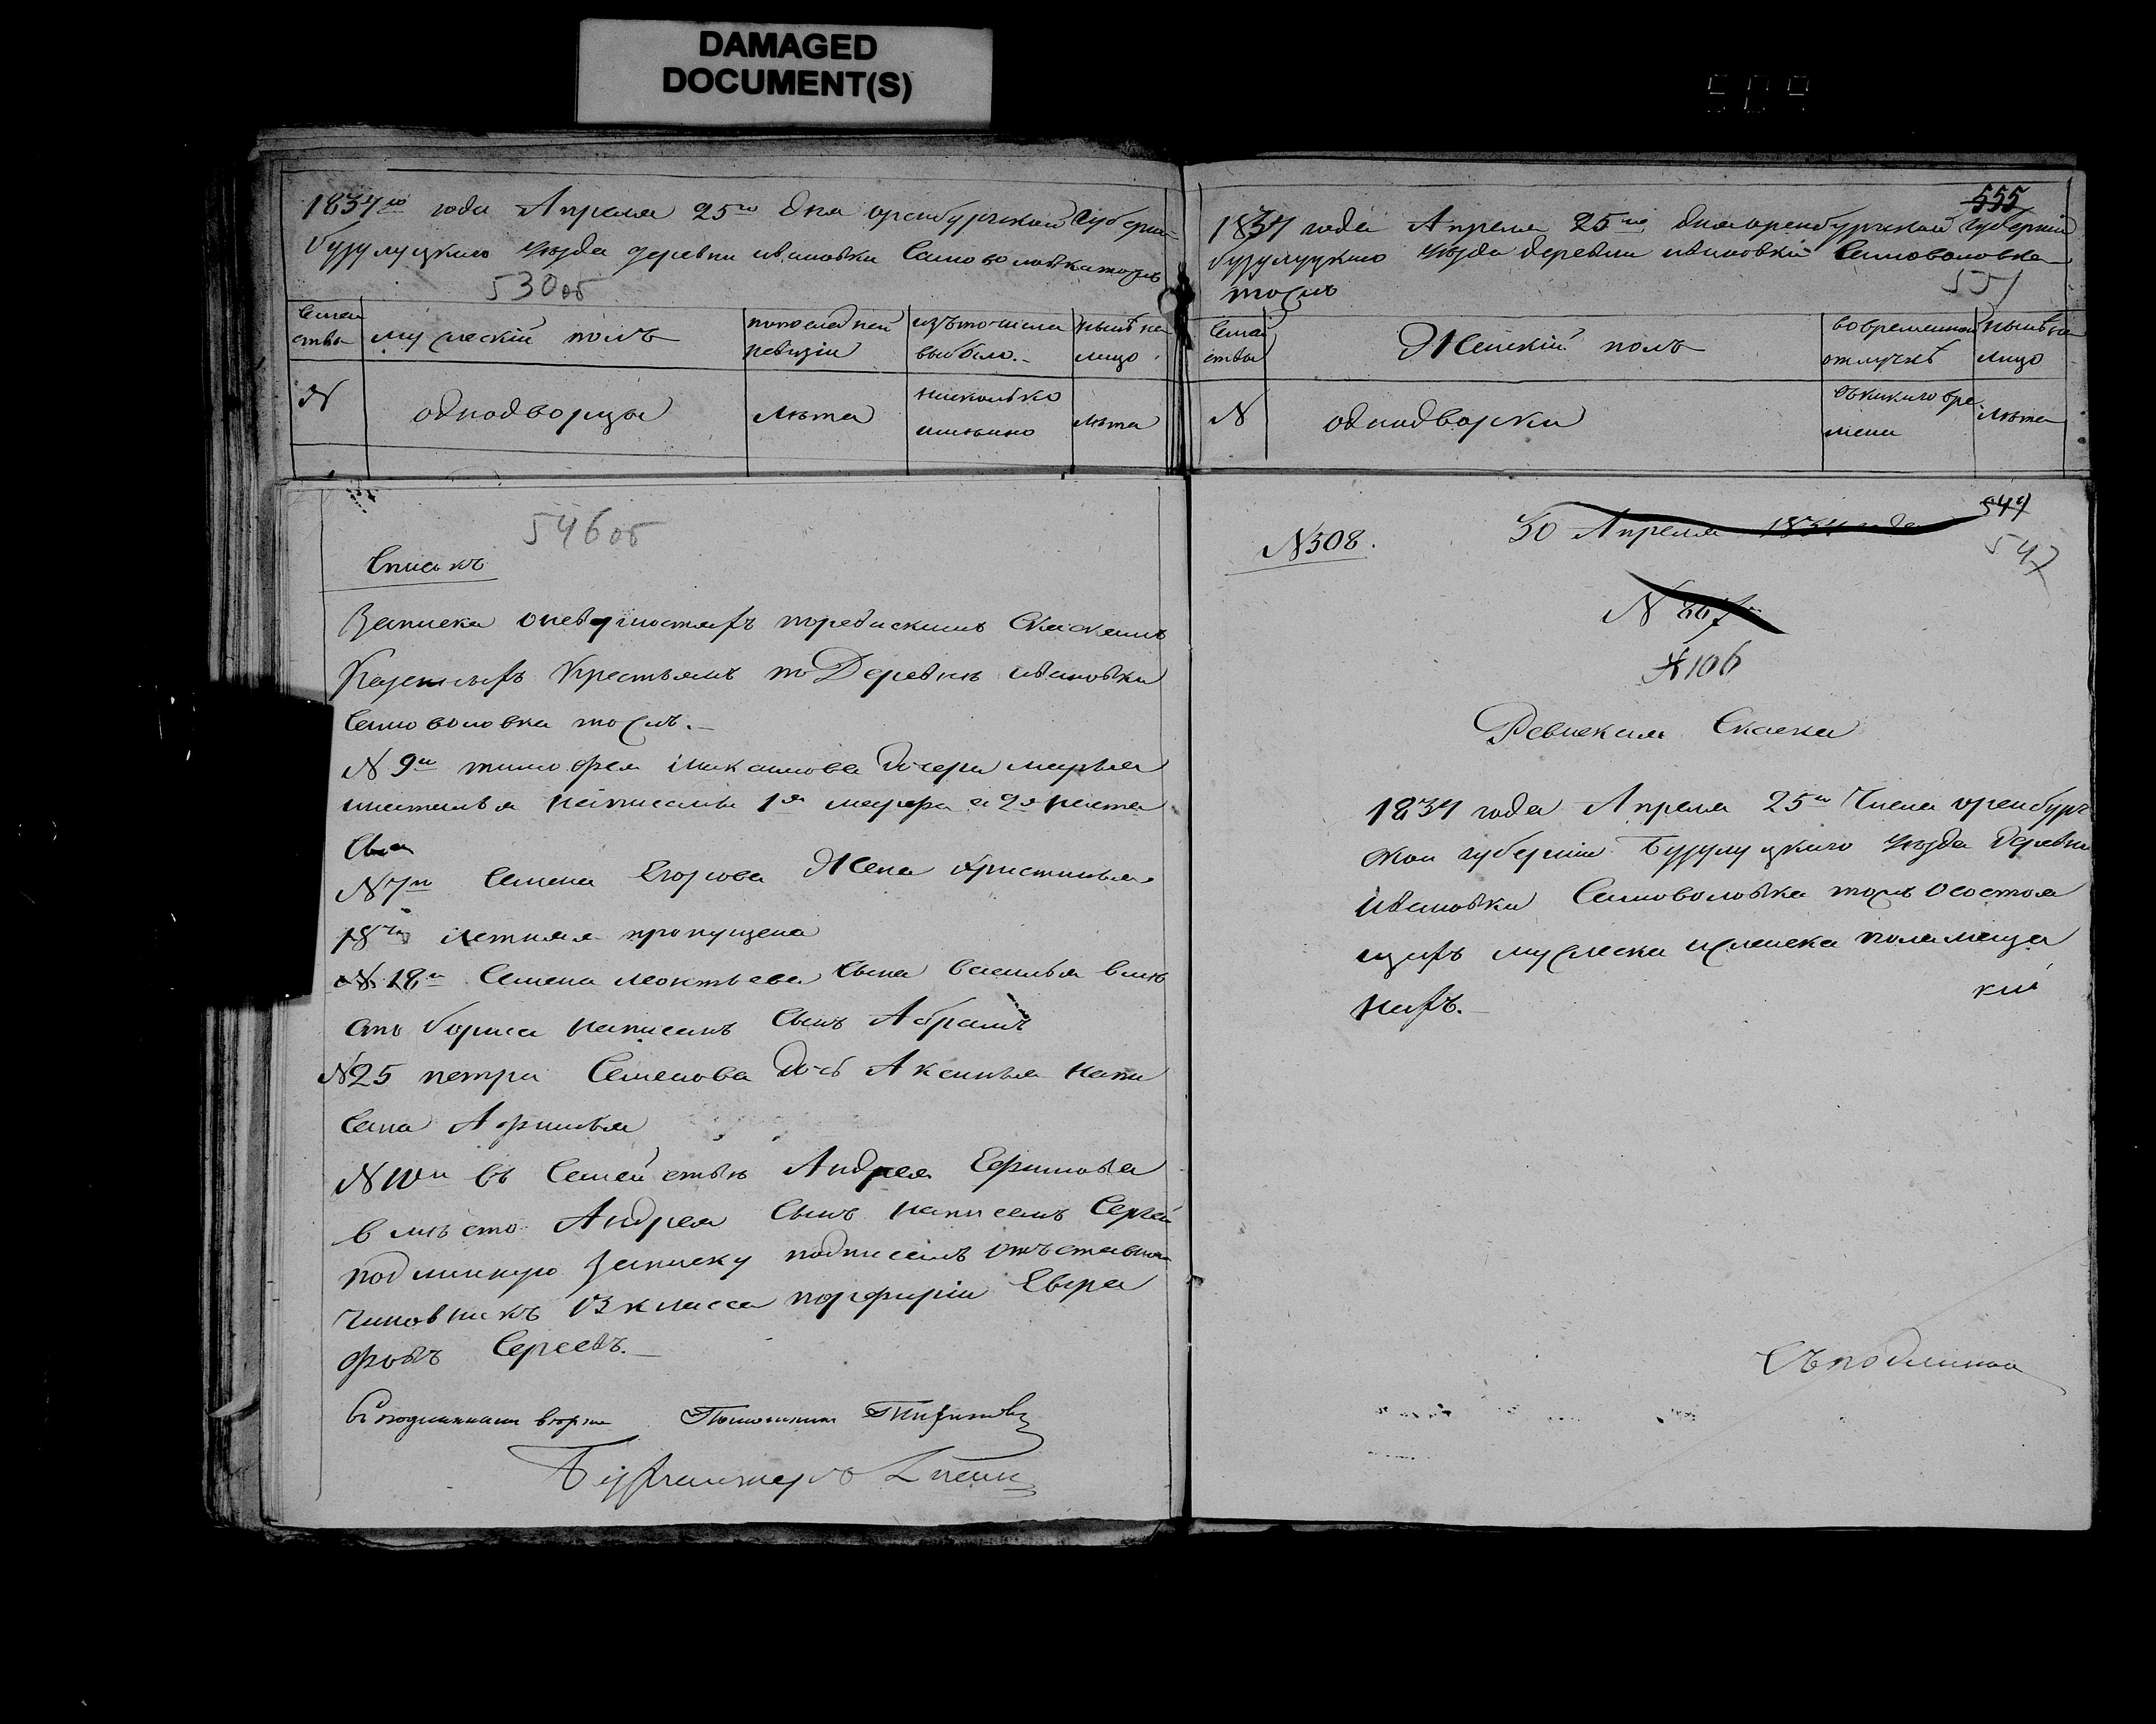 DAMAGED
DOCUMENT(S)
509
1834го года Апреля 25го дня оренбургской Губерни
бузулуцкаго уѣзда деревни ивановки Самоволовка тожъ
530об
Семей
ства
мужеский полъ
попоследней
ревизiи
изътогочисла
выбыло.
нынѣ на
лицо
N
однодворцы
лѣта
лѣта
555
1834 года Апреля 25го дня оренбургской губернiи
бузулуцкаго уѣзда деревни ивановки Самоволовка
тожъ
551
Семей
ства
Женскiй полъ
вовременной
отлучкѣ
нынѣ на
лицо
N
однодворки
съкакаго вре
мени
лѣта
546об
Списокъ
Записка оневерностяхъ поревискимъ Скаскамъ
Казенныхъ Крестьянъ по Деревнѣ ивановки
Самоволовка тожъ.
N 9й тимофея Максимова дочери марья
наталья написаны 1я марфа а 2я наста
сья
N 7й Семена Егорова Жена христинья
18ти летняя пропущена
N 18й Семена леонтьева Сына василья вмѣ
сто бориса написанъ Сынъ Абрамъ
N25 петра Семенова дочь Аксинья напи
Сана Афимья
N 10й въ Семействѣ Андрея Ефимова
вмѣсто Андрея Сынъ написанъ Сергей
подлинную записку подписалъ отъставной
Чиновникъ 13 класса порфирiй Евгра
фовъ Сергеевъ.
N308.
30 Апреля 1834 года
547
547
N 867
№106
Ревиская Скаска
1834 года Апреля 25го Числа оренбург
ской губернiи Бузулуцкаго уѣзда деревни
ивановки Самоволовка тожъ осостоя
щихъ мужеска иженска пола меща
нахъ.
кiй
Съподлинной